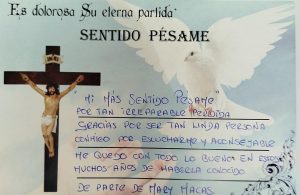 Es dolorosa Su eterna partida
SENTIDO PÉSAME
"Mi MÁS SENTIDO PÉSAME"
POR TAN IRREPARABLE PERDIDA
GRACIAS POR SER TAN LINDA PERSONA
CONMIGO POR ESCUCHARME Y ACONSEJARME
ME QUEDO CON TODO LO BUENO EN ESTOS
MUCHOS AÑOS DE HABERLA CONOCIDO
DE PARTE DE MARY MACAS